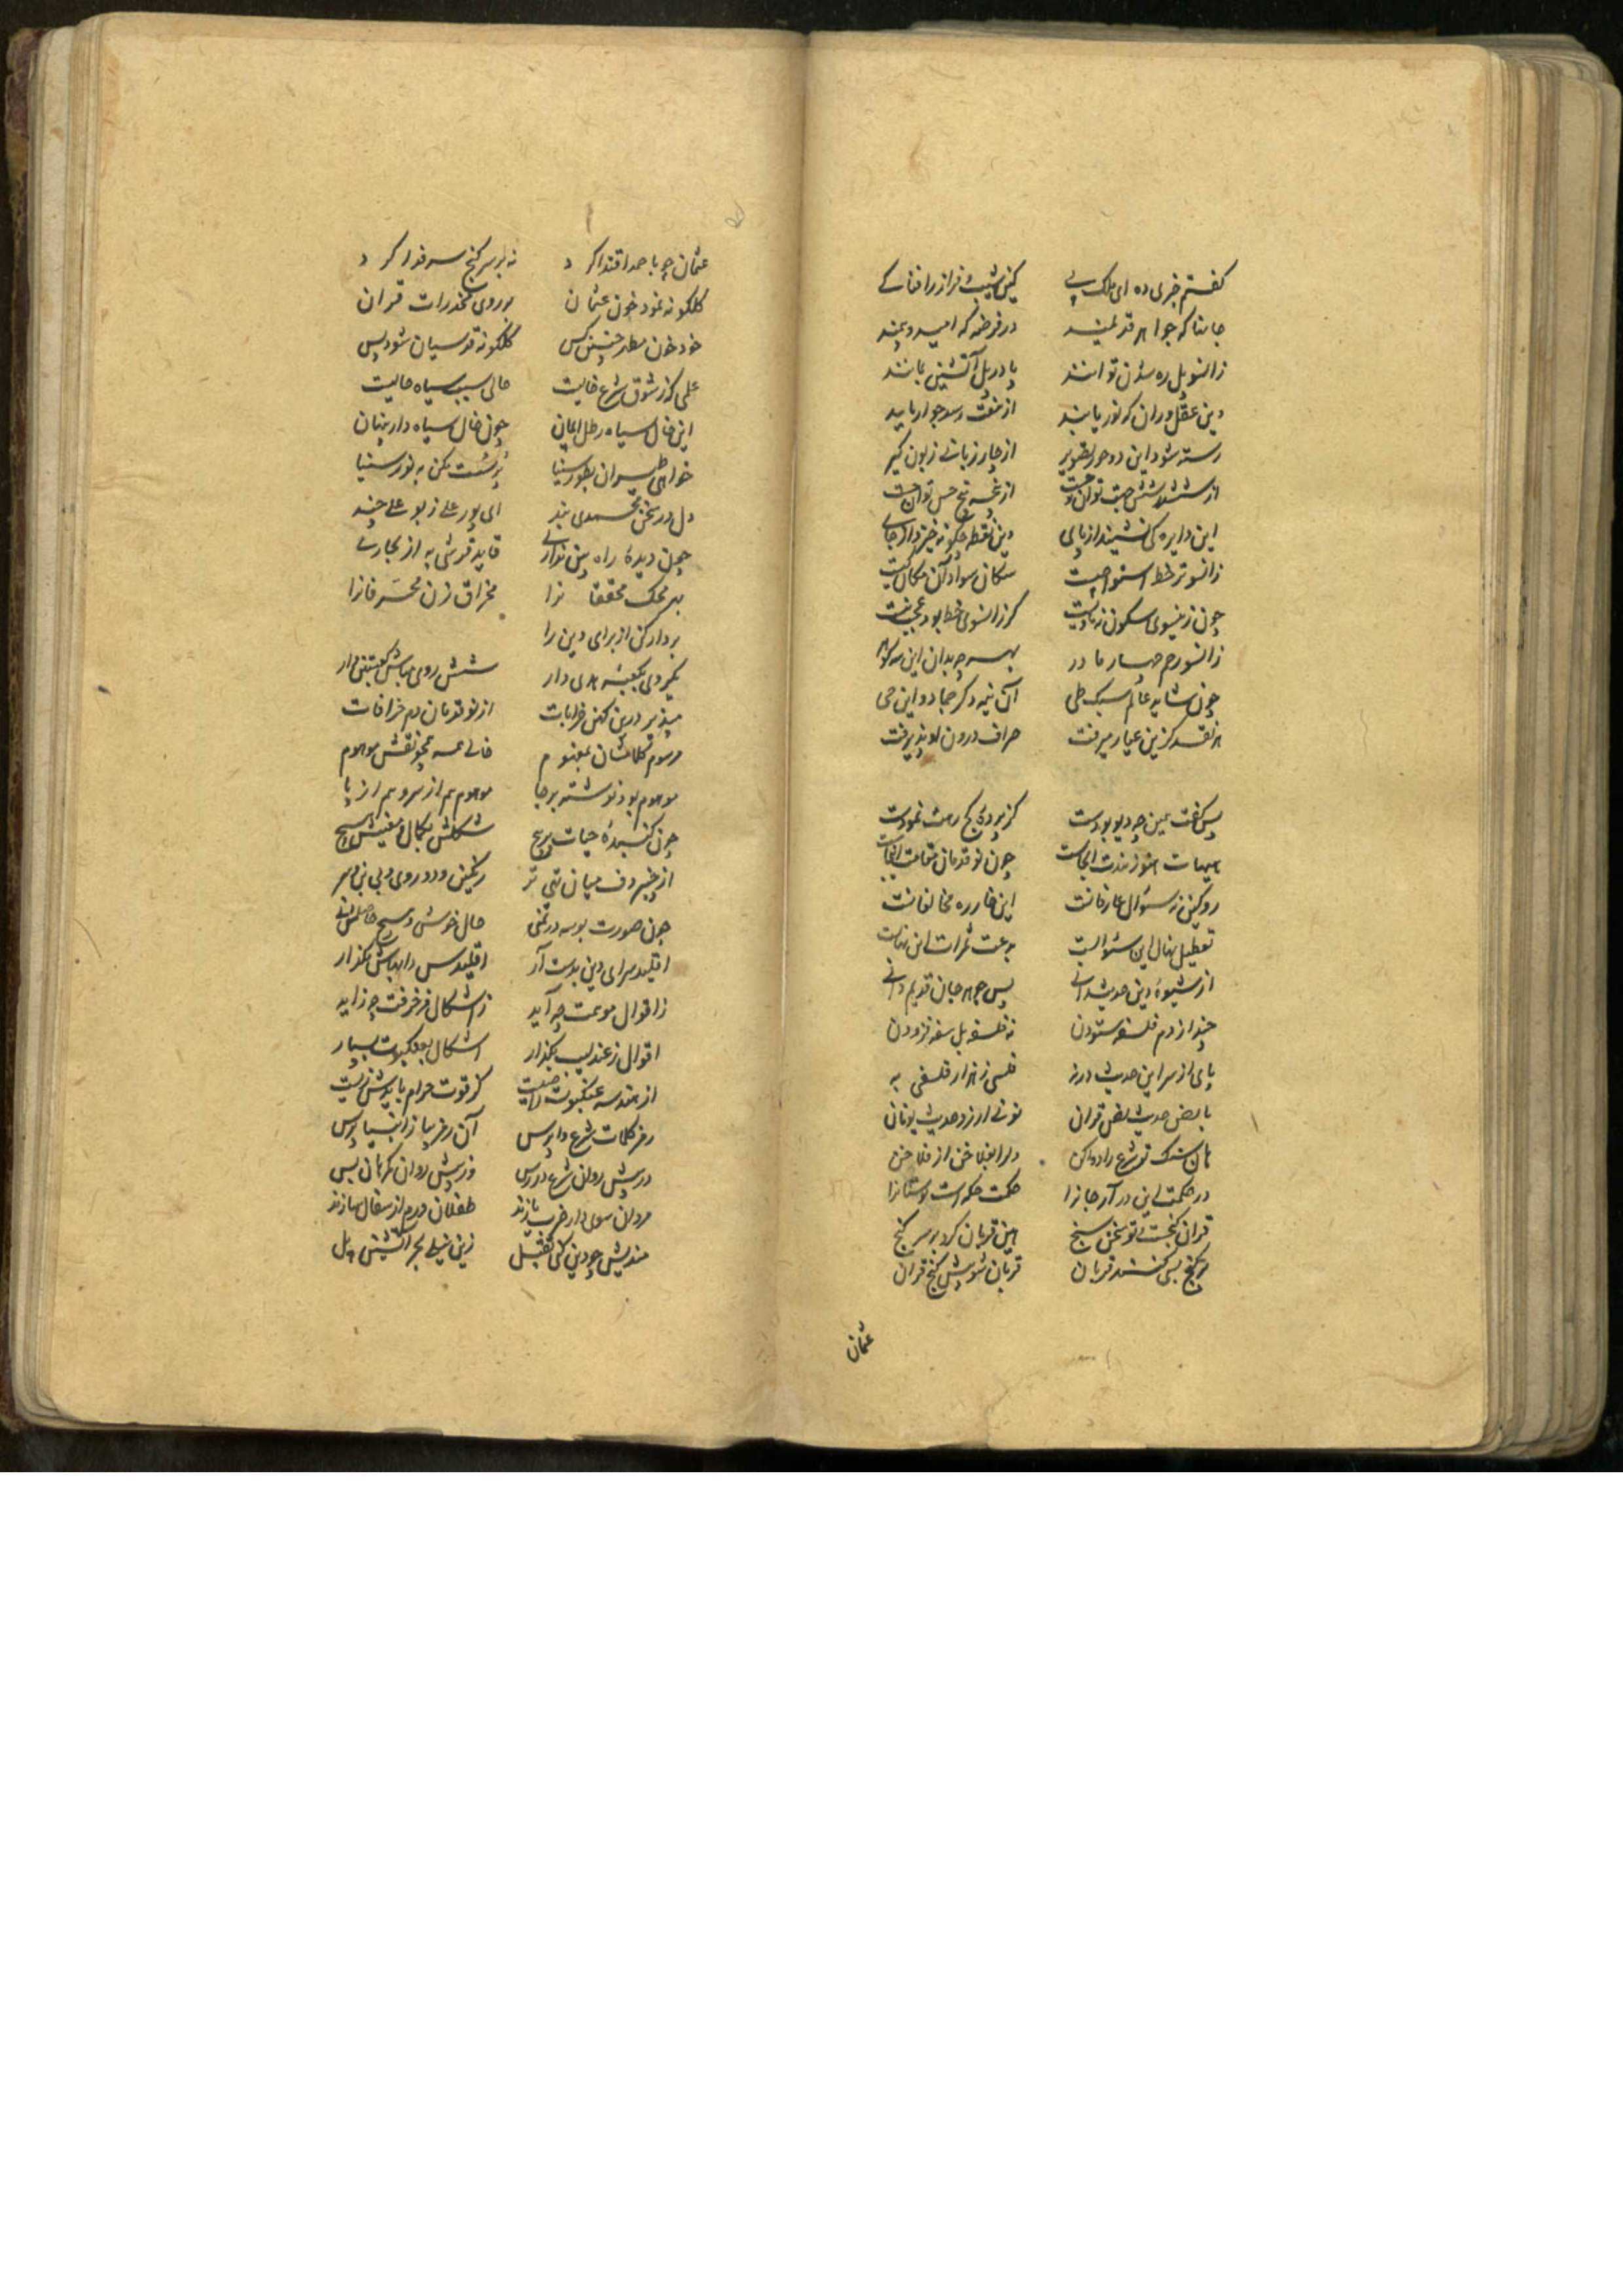 گفتم خبری ده ای ملک پی کین شیب فراز را فنا کے
جانها که جواهر قدیمند در قرضه که امید و بیمند
زانسوی پل ره شدن توانند یا در پل آتشین بمانند
وین عقل وران که نور یابند از
رسته شود این دو از چار زبانی زبون گیر
از ششدر شش جهت توان جست از پنج حس توان
این دایره کی نشیند از پای وین نقطه چگونه خیزد از جای
زانسوتر خط استوا چیست سکان سواد آن مکان کیست
چون زینسوی سکون گر زانسوی خط بود عجب نیست
زانسو رحم چهار مادر بهر چه بد این سه
چون شاید عالم سبک طی آن نیمه دگر جماد و این حی
هر نقد کزین عیار میرفت صراف درون او پذیرفت
پس گفت همین چه دیو بودت کز پرده کج رهت نمودت
هیهات هنوز ذهنت اینجاست چون نو قدمان
رو کین نه سؤال عارفانست این خار ره مخالفانست
تعطیل نهال این سئوالست بدعت ثمرات این نهالست
از شیوه دین حدیث دانی پس جوهر جان قدیم دانی
چند از دم فلسفه ستودن نه فلسفه بل سفه فزودن
پای از سر این حدیث در نه فلسی ز هزار فلسفی به
با نص حدیث نص قران نونی ارزد حدیث یونان
هان سنگ تو شرع را دار افلاخن از فلاخن
در حکمت این در آر جانرا حکمت حکه است
قران گنجست تو سخن سنج هین قربان گرد بر سر گنج
بر گنج بسی کنند قربان قربان شو پیش گنج قران
عثمان
عثمان چو با حمد اقتدا کرد نه بر سر گنج سر فدا کرد
گلگونه نمود خون عثمان بر روی مخدرات قران
خود خون مطهر چنین کس گلگونه قدسیان شود بس
علمی که ز ذوق شرع خالیست حالی سبب سیاه حالیست
این خال سیاه چون خال سیاه دار پنهان
خواهی طیران بطور سینا پر سست مکن به پور سینا
دل در سخن محمدی بند ای پور علی ز بو علی چند
چون دیده راه بین نداری قاید قرشی به از بخاری
بر محک محققانرا مخراق زن مخرفانرا
بردار کن از برای دین را
یکروی بکعبه هدی دار شش روی مباش کعبتین وار
مپذیر درین کهن خرابات از نو قدمان دم خرافات
مرسوم کلامشان بمفهوم خالی همه همچو نقش موهوم
موهوم بود نوشته برجا موهوم هم از سر و هم از پا
چون گنبدۀ حیات پر پیچ شکلش بکمال و معنیش هیچ
از چنبر دف میان تهی تر رنگین و دو روی و بی بن و سر
چون صورت بوسه در تمنی حال خوش و هیچ حاصلش نی
اقلید سرای دین بدست آر اقلیدس را بهاش بگذار
ز اقوال چه آید ز اشکال مزخرفت چه زاید
اقوال ز عندلیب بگذار اشکال بعنکبوت بسپار
از هندسه عنکبوت را چیست کز قوت حرام بایدش زیست
رمز کلمات شرع واپرس آن رمز بیا ز انبیا پرس
در پیش روان شرع در رس وز پیش روان گمرهان بس
مردان سوی دار ضرب یازند طفلان درم از سفال سازند
مندیش چو دین کی کفیل زین نیلی بحر آتشین پل